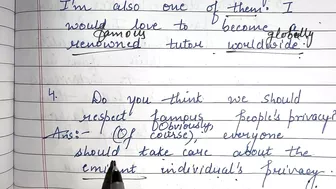 I'm also one of them. I
would love to become
famous globally
renowned tutor worldwide.
4. Do you think we should
respect famous people's privacy?
Obviously,
Ans:- (Of course), everyone
should take care about the
eminent individual's privacy